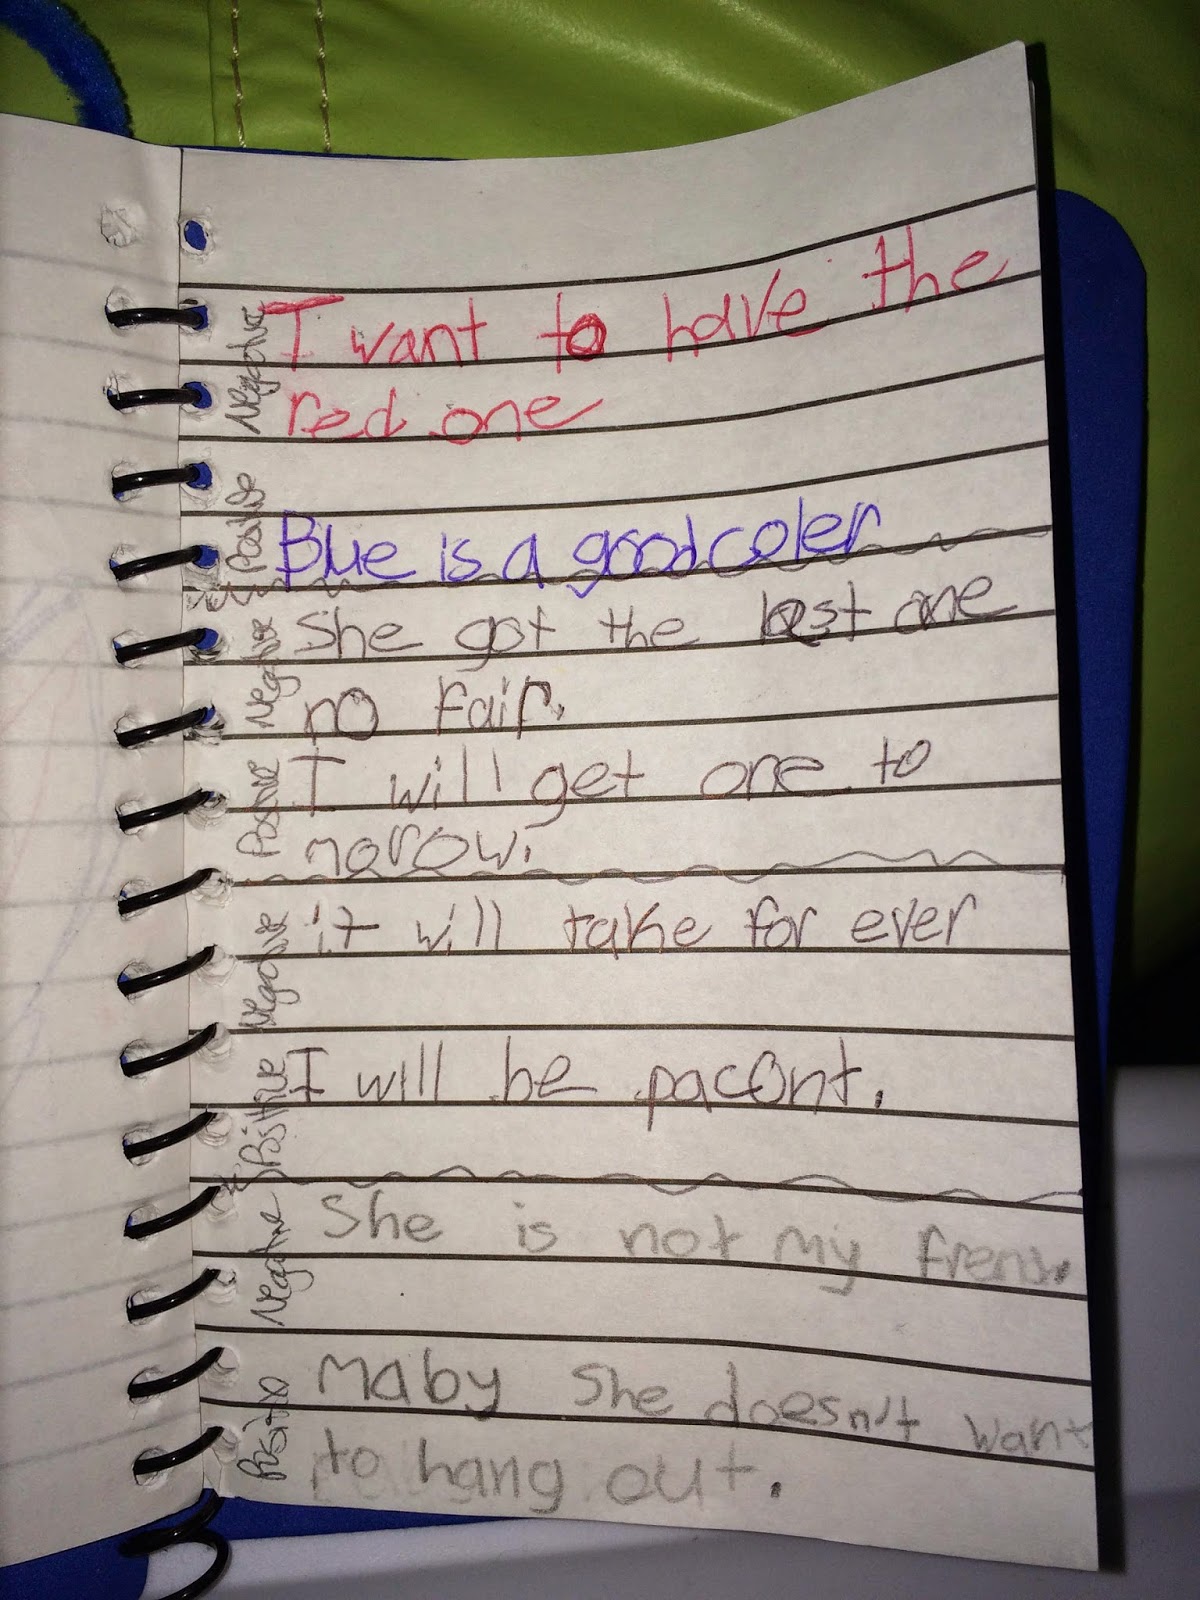 Negative
I want to have the
red one
Positive
Blue is a good coler
Negative
She got the last one
no fair.
Positive
I will get one to
morow.
Negative
it will take for ever
Positive
I will be pacont.
Negative
She is not my frend.
Positive
Maby She doesn't want
to hang out.